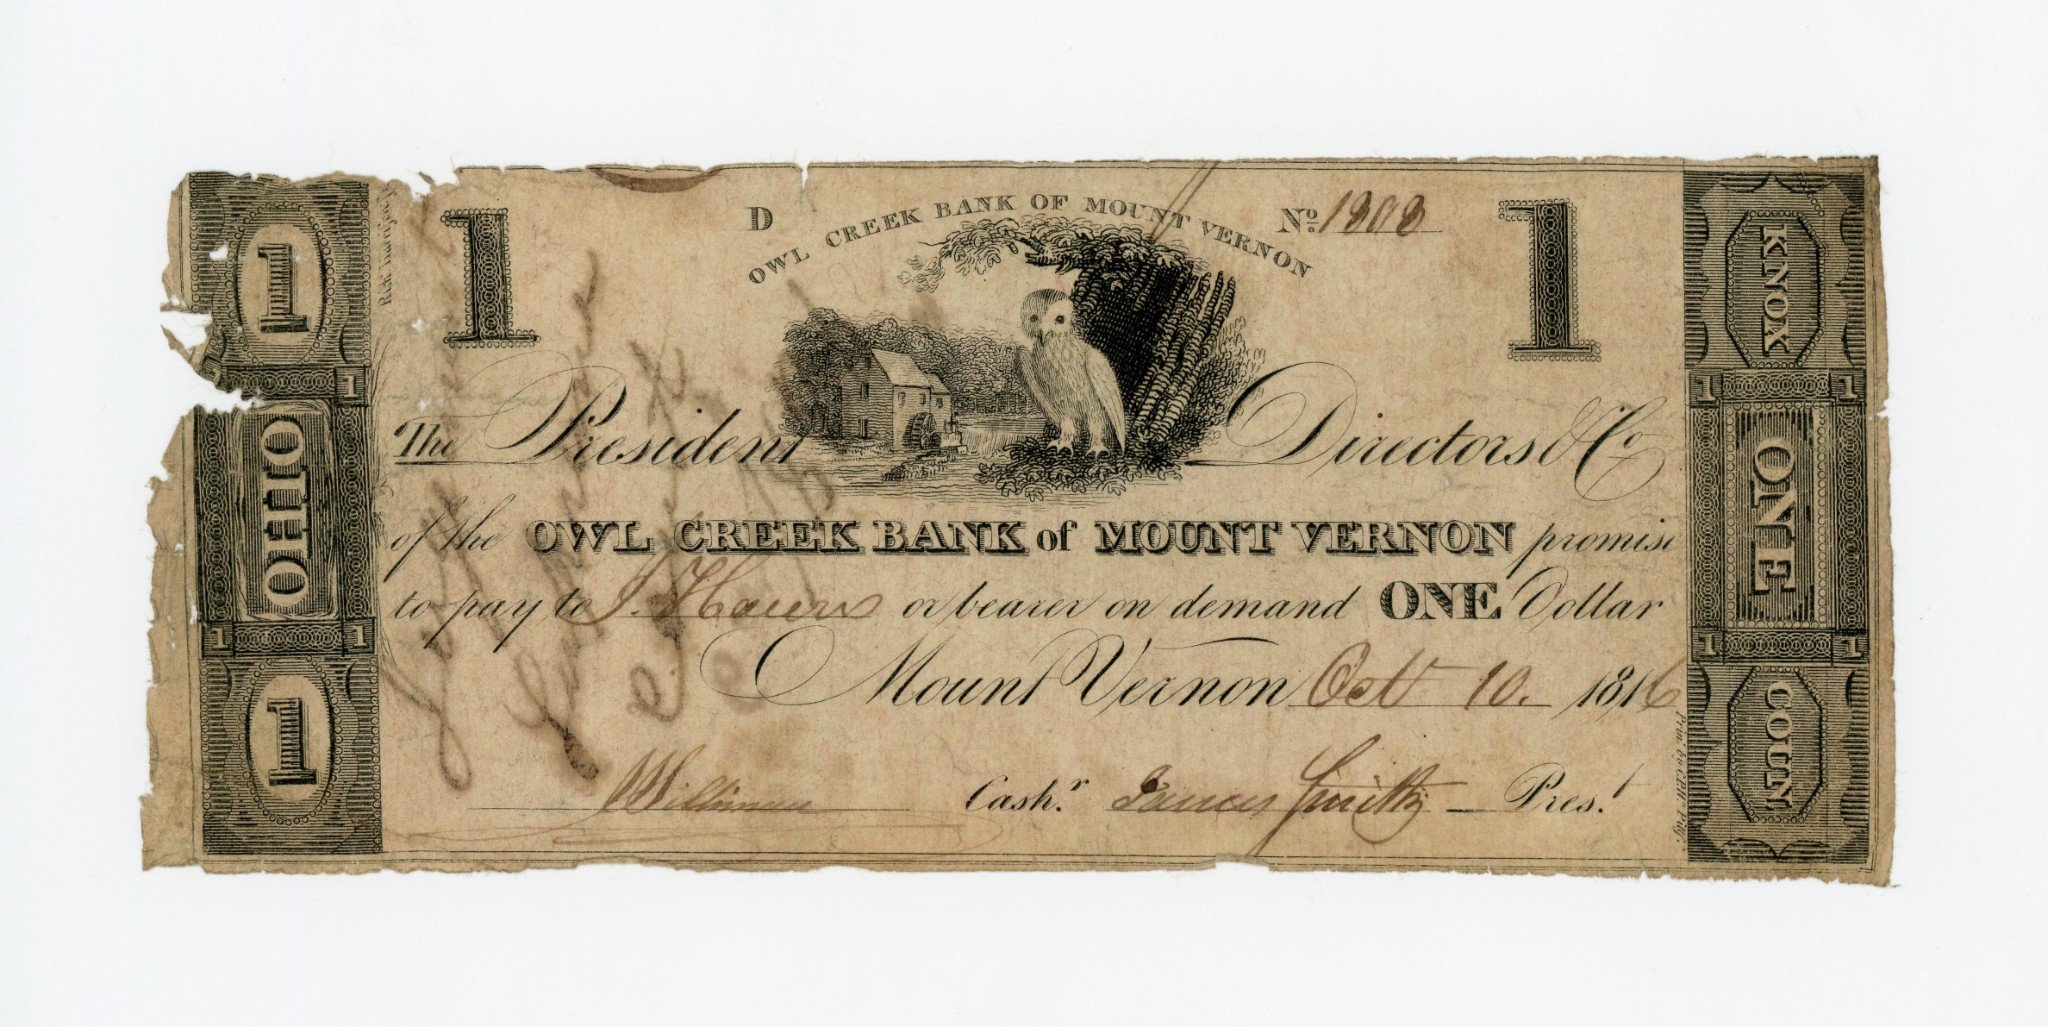 OWL CREEK BANK OF MOUNT VERNON
D
No
1
1
1
1
1
1
OHIO
1
1
1
KNOX
1
1
ONE
1
1
COUN
The President Directors & Co
of the OWL CREEK BANK of MOUNT VERNON promise
to pay to J. Haurs or bearer on demand ONE Dollar
Mount Vernon Oct 10. 1816
Cash.r James Smith Pres.t